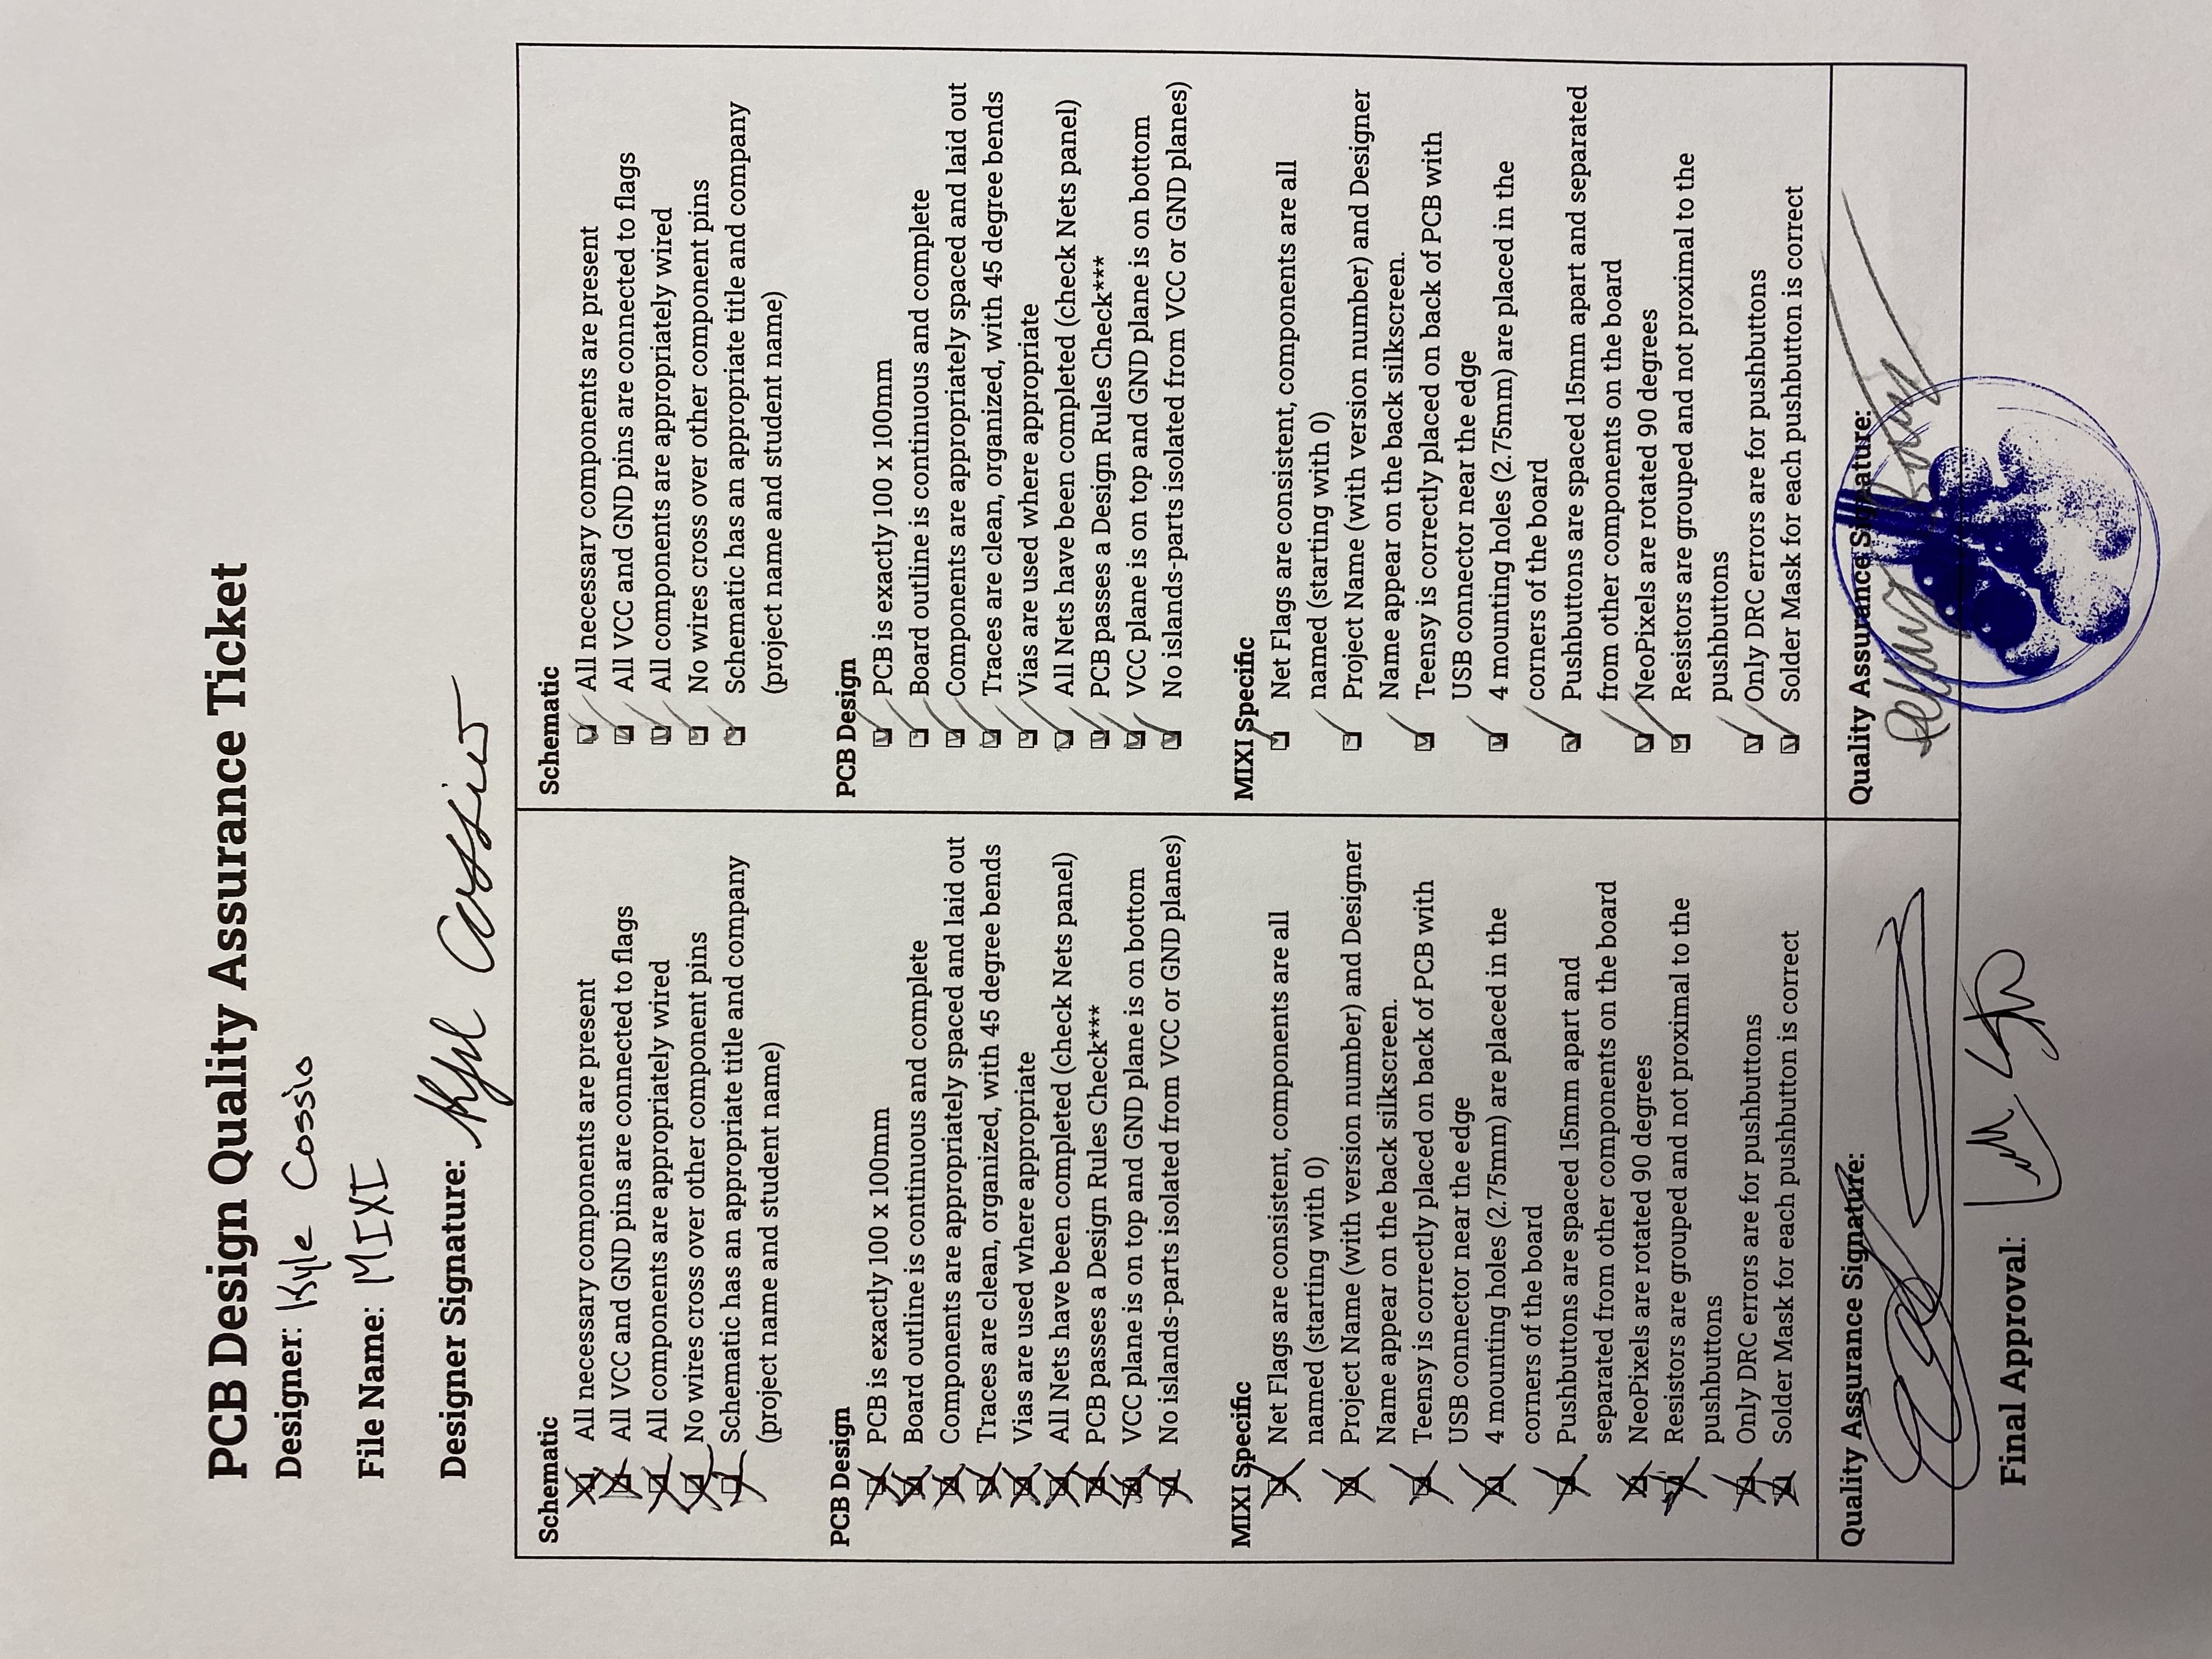 PCB Design Quality Assurance Ticket
Designer: Kyle Cossio
File Name: MIXI
Designer Signature: Kyle Cossio
Schematic
All necessary components are present
All VCC and GND pins are connected to flags
All components are appropriately wired
No wires cross over other component pins
Schematic has an appropriate title and company
(project name and student name)
PCB Design
PCB is exactly 100 x 100mm
Board outline is continuous and complete
Components are appropriately spaced and laid out
Traces are clean, organized, with 45 degree bends
Vias are used where appropriate
All Nets have been completed (check Nets panel)
PCB passes a Design Rules Check***
VCC plane is on top and GND plane is on bottom
No islands-parts isolated from VCC or GND planes)
MIXI Specific
Net Flags are consistent, components are all
named (starting with 0)
Project Name (with version number) and Designer
Name appear on the back silkscreen.
Teensy is correctly placed on back of PCB with
USB connector near the edge
4 mounting holes (2.75mm) are placed in the
corners of the board
Pushbuttons are spaced 15mm apart and
separated from other components on the board
NeoPixels are rotated 90 degrees
Resistors are grouped and not proximal to the
pushbuttons
Only DRC errors are for pushbuttons
Solder Mask for each pushbutton is correct
Quality Assurance Signature:
Schematic
All necessary components are present
All VCC and GND pins are connected to flags
All components are appropriately wired
No wires cross over other component pins
Schematic has an appropriate title and company
(project name and student name)
PCB Design
PCB is exactly 100 x 100mm
Board outline is continuous and complete
Components are appropriately spaced and laid out
Traces are clean, organized, with 45 degree bends
Vias are used where appropriate
All Nets have been completed (check Nets panel)
PCB passes a Design Rules Check***
VCC plane is on top and GND plane is on bottom
No islands-parts isolated from VCC or GND planes)
MIXI Specific
Net Flags are consistent, components are all
named (starting with 0)
Project Name (with version number) and Designer
Name appear on the back silkscreen.
Teensy is correctly placed on back of PCB with
USB connector near the edge
4 mounting holes (2.75mm) are placed in the
corners of the board
Pushbuttons are spaced 15mm apart and separated
from other components on the board
NeoPixels are rotated 90 degrees
Resistors are grouped and not proximal to the
pushbuttons
Only DRC errors are for pushbuttons
Solder Mask for each pushbutton is correct
Quality Assurance Signature:
Final Approval: